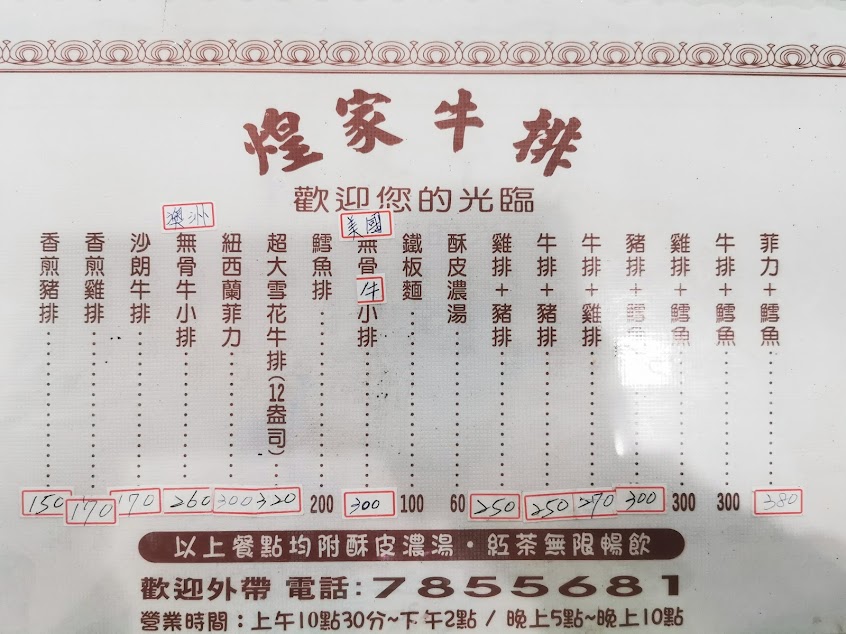 煌家牛排
歡迎您的光臨
香煎豬排 150
香煎雞排 170
沙朗牛排 170
澳洲無骨牛小排 260
紐西蘭菲力 300
超大雪花牛排(12盎司) 320
鱈魚排 200
美國無骨牛小排 300
鐵板麵 100
酥皮濃湯 60
雞排+豬排 250
牛排+豬排 250
牛排+雞排 270
豬排+鱈魚 300
雞排+鱈魚 300
牛排+鱈魚 300
菲力+鱈魚 380
以上餐點均附酥皮濃湯·紅茶無限暢飲
歡迎外帶 電話:7855681
營業時間:上午10點30分~下午2點 / 晚上5點~晚上10點